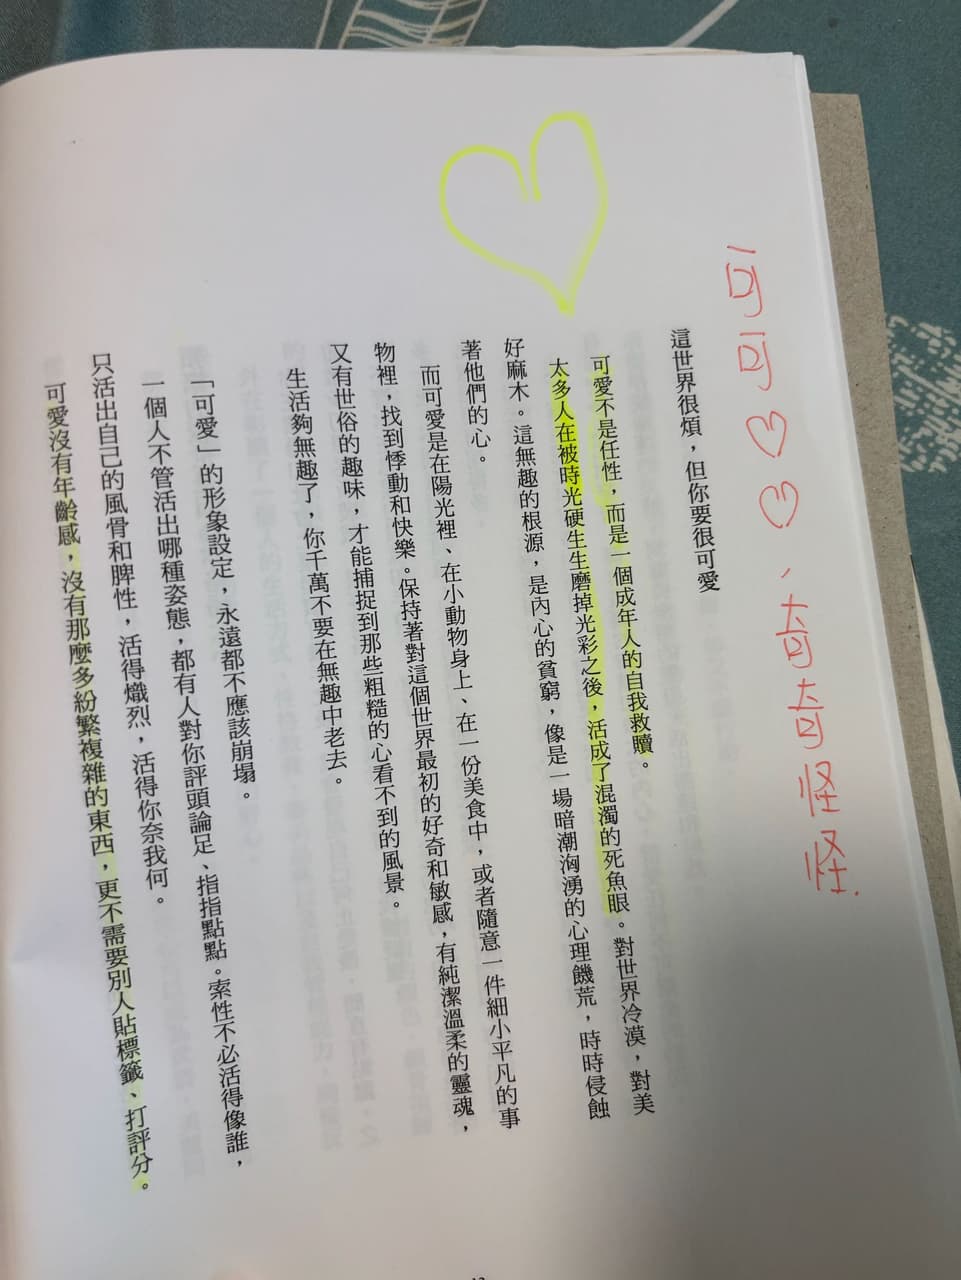 可可♡♡，奇奇怪怪.
這世界很煩，但你要很可愛
可愛不是任性，而是一個成年人的自我救贖。
太多人在被時光硬生生磨掉光彩之後，活成了混濁的死魚眼。對世界冷漠，對美
好麻木。這無趣的根源，是內心的貧窮，像是一場暗潮洶湧的心理饑荒，時時侵蝕
著他們的心。
而可愛是在陽光裡、在小動物身上、在一份美食中，或者隨意一件細小平凡的事
物裡，找到悸動和快樂。保持著對這個世界最初的好奇和敏感，有純潔溫柔的靈魂，
又有世俗的趣味，才能捕捉到那些粗糙的心看不到的風景。
生活夠無趣了，你千萬不要在無趣中老去。
「可愛」的形象設定，永遠都不應該崩塌。
一個人不管活出哪種姿態，都有人對你評頭論足、指指點點。索性不必活得像誰，
只活出自己的風骨和脾性，活得熾烈，活得你奈我何。
可愛沒有年齡感，沒有那麼多紛繁複雜的東西，更不需要別人貼標籤、打評分。